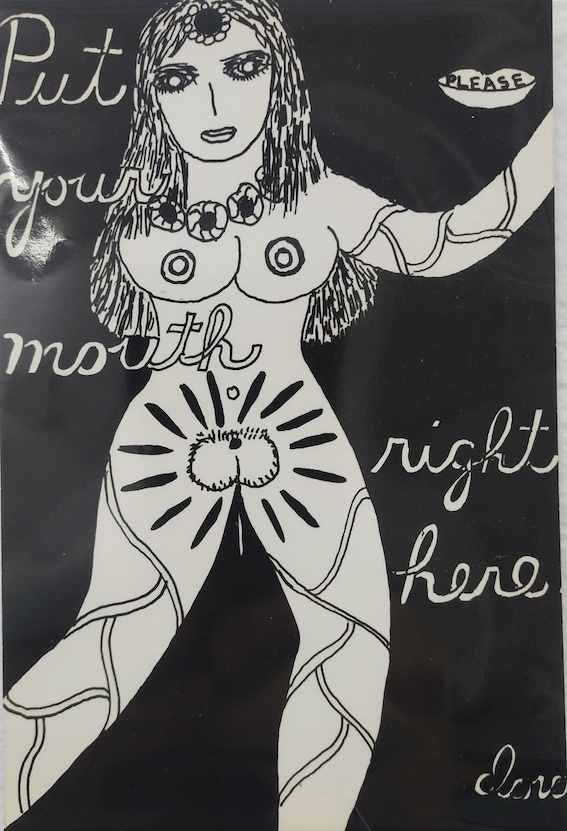 Put
PLEASE
your
mouth
right
here